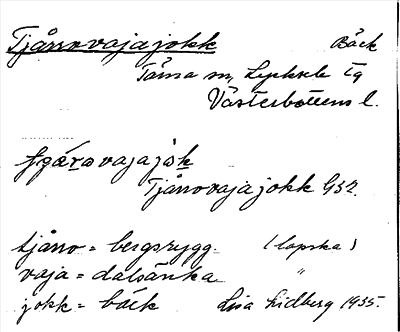 Tjånovajajokk Bäck
Tärna sn, Lycksele tg
Västerbottens l.
vajajåk
Tjånovajajokk G32.
tjåno = bergsrygg. (lapska)
vaja = dalsänka "
jokk = bäck Lisa Lidberg 1935.